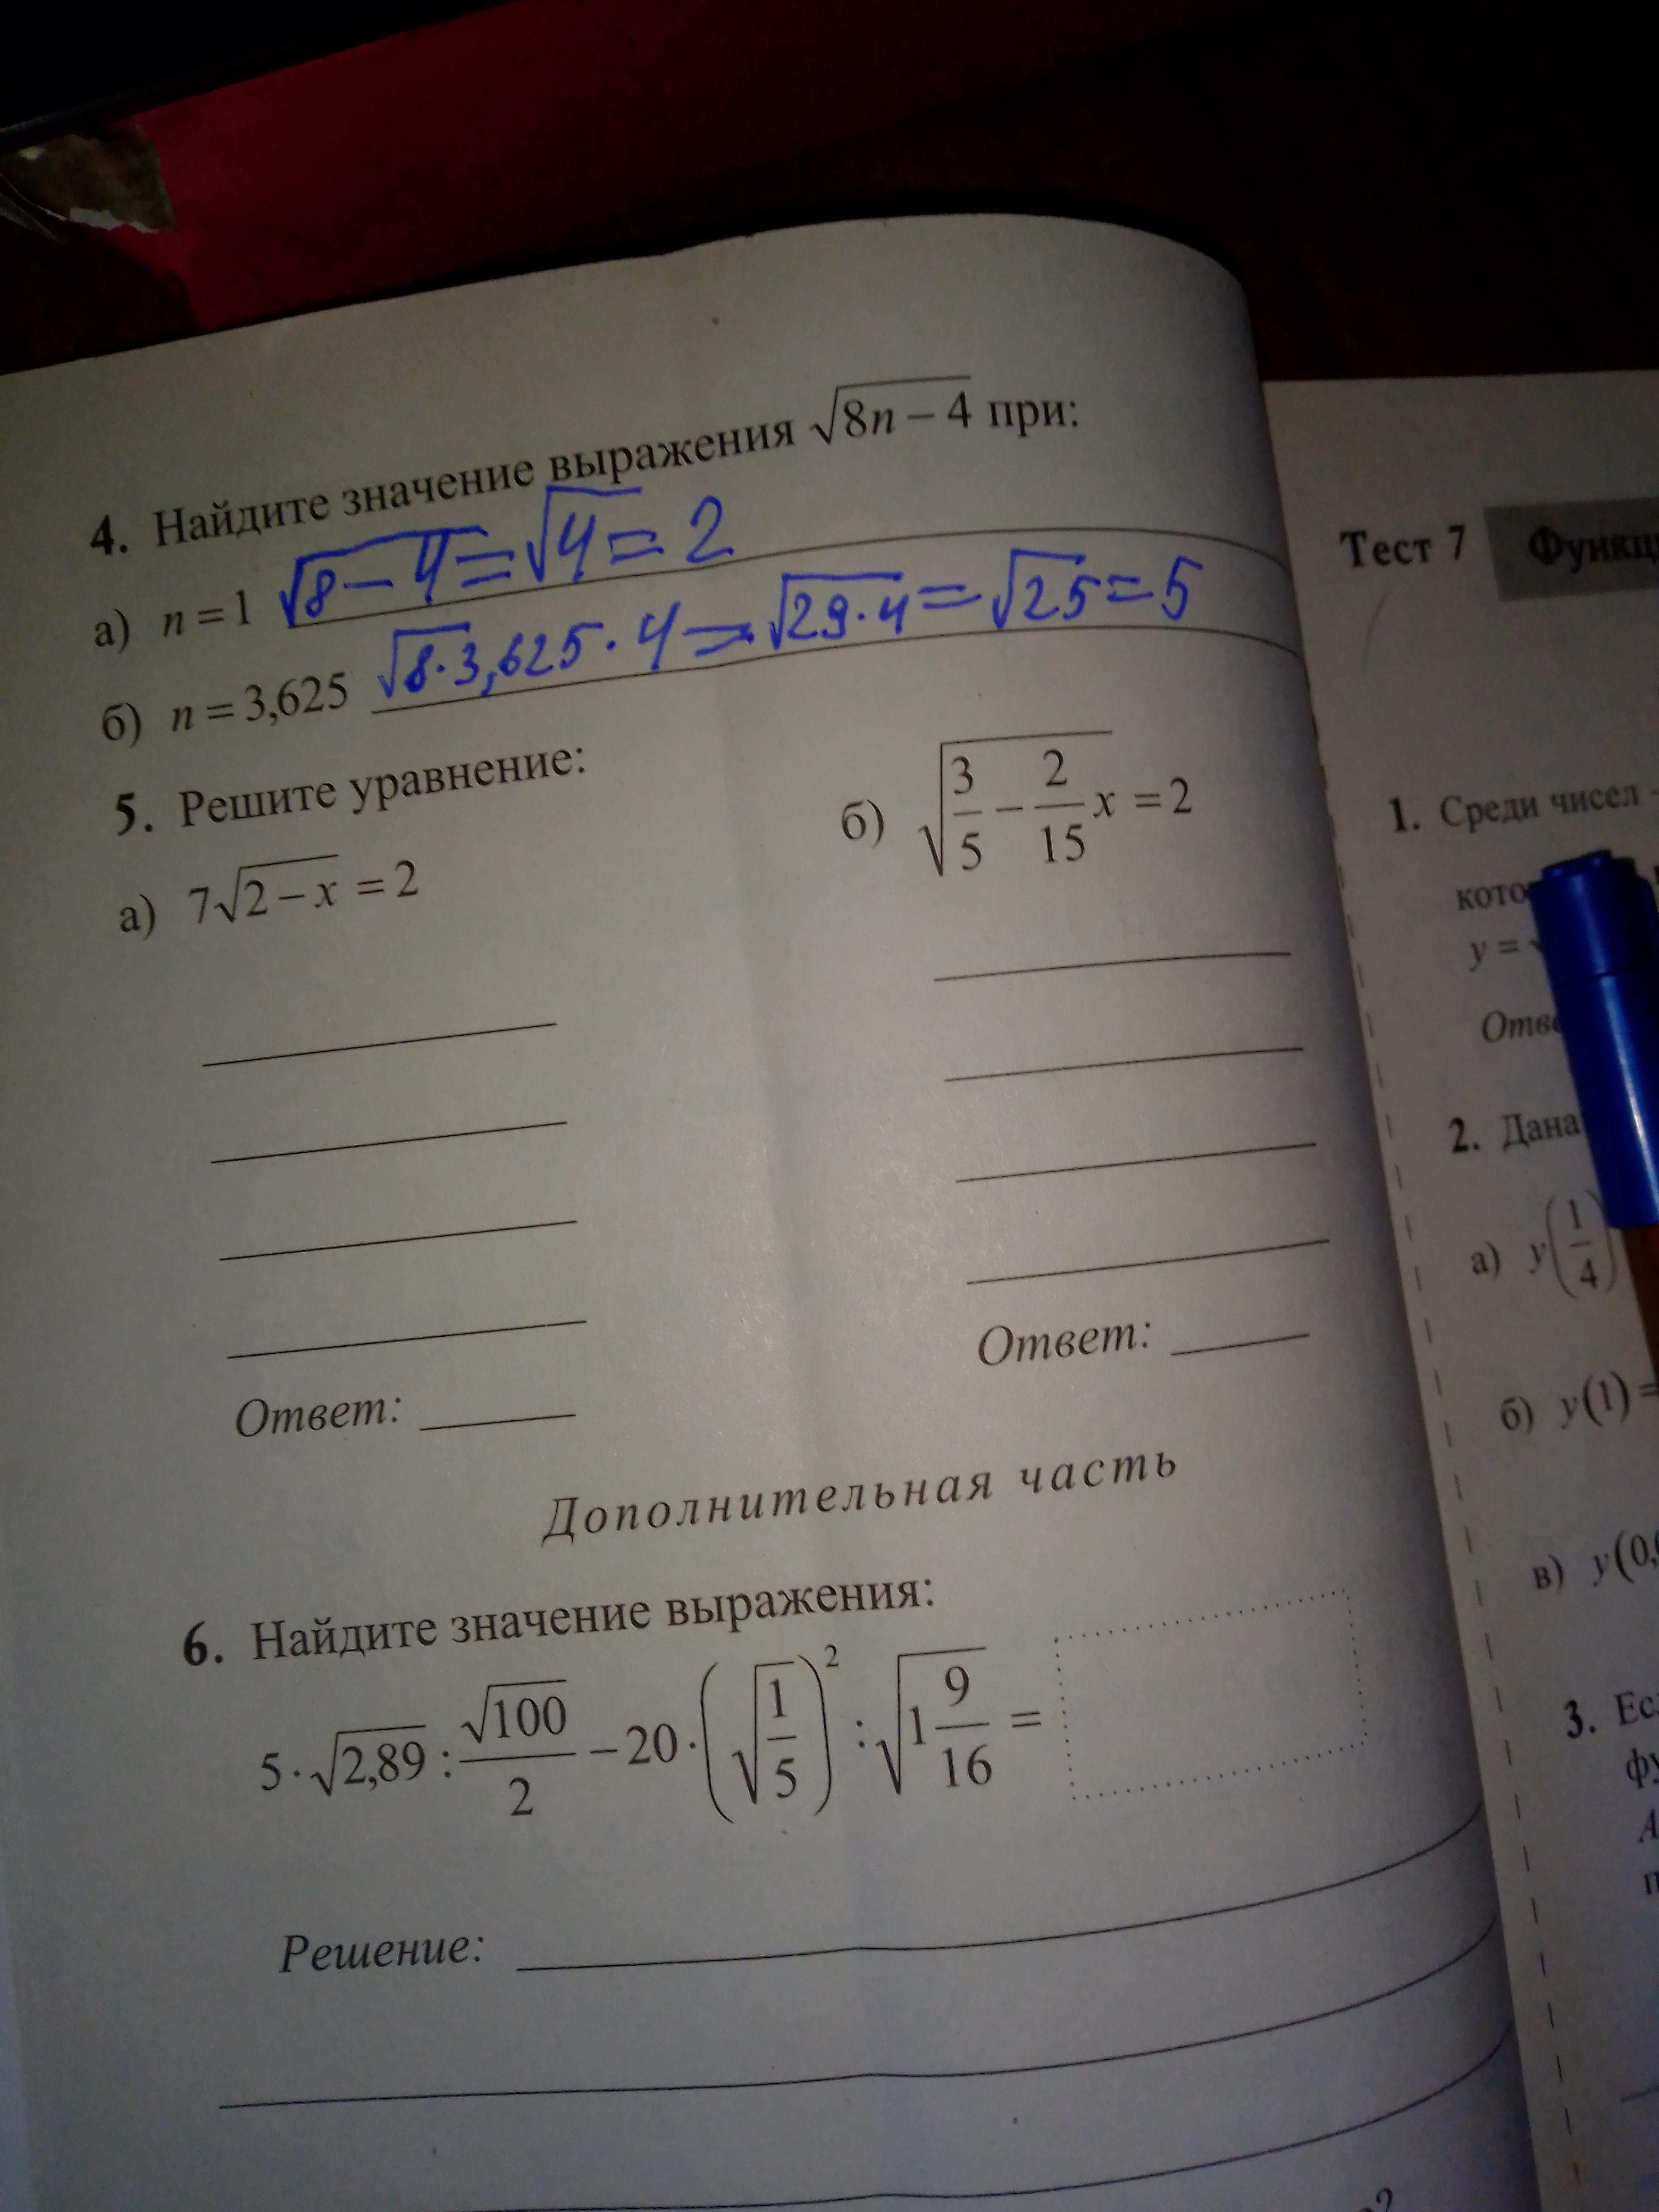 4. Найдите значение выражения √8n − 4 при:
а) n = 1 √8 − 4 = √4 = 2
б) n = 3,625 √8·3,625 · 4 = √29·4 = √25 = 5
5. Решите уравнение:
а) 7√2 − x = 2
б) √3/5 − 2/15 x = 2
Ответ:
Ответ:
Дополнительная часть
6. Найдите значение выражения:
5 · √2,89 : √100/2 − 20 · (√1/5)² : √1 9/16 =
Решение:
Тест 7
1. Среди чисел
y =
2. Дана
а) y(1/4)
б) y(1) =
в) y(0,
3.